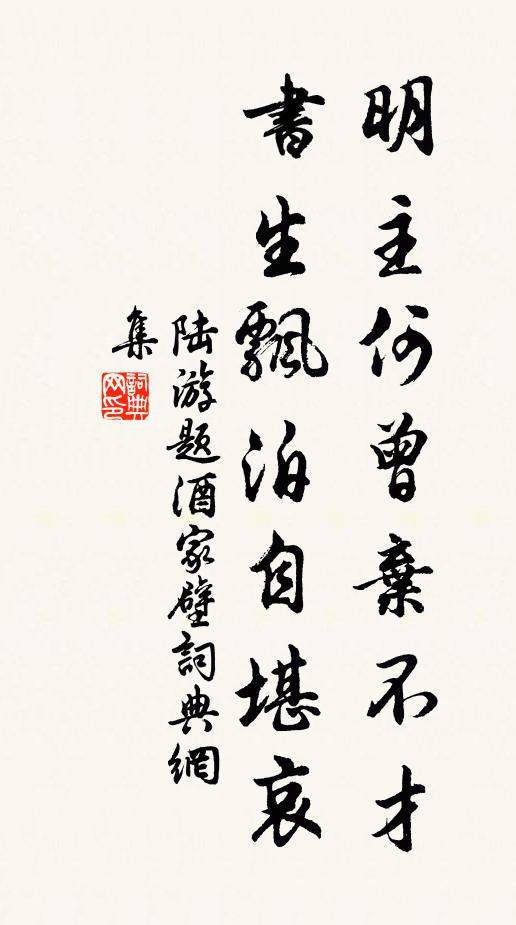 明主何曾棄不才
書生飄泊自堪哀
陆游题酒家壁詞典網
集
詞典网印